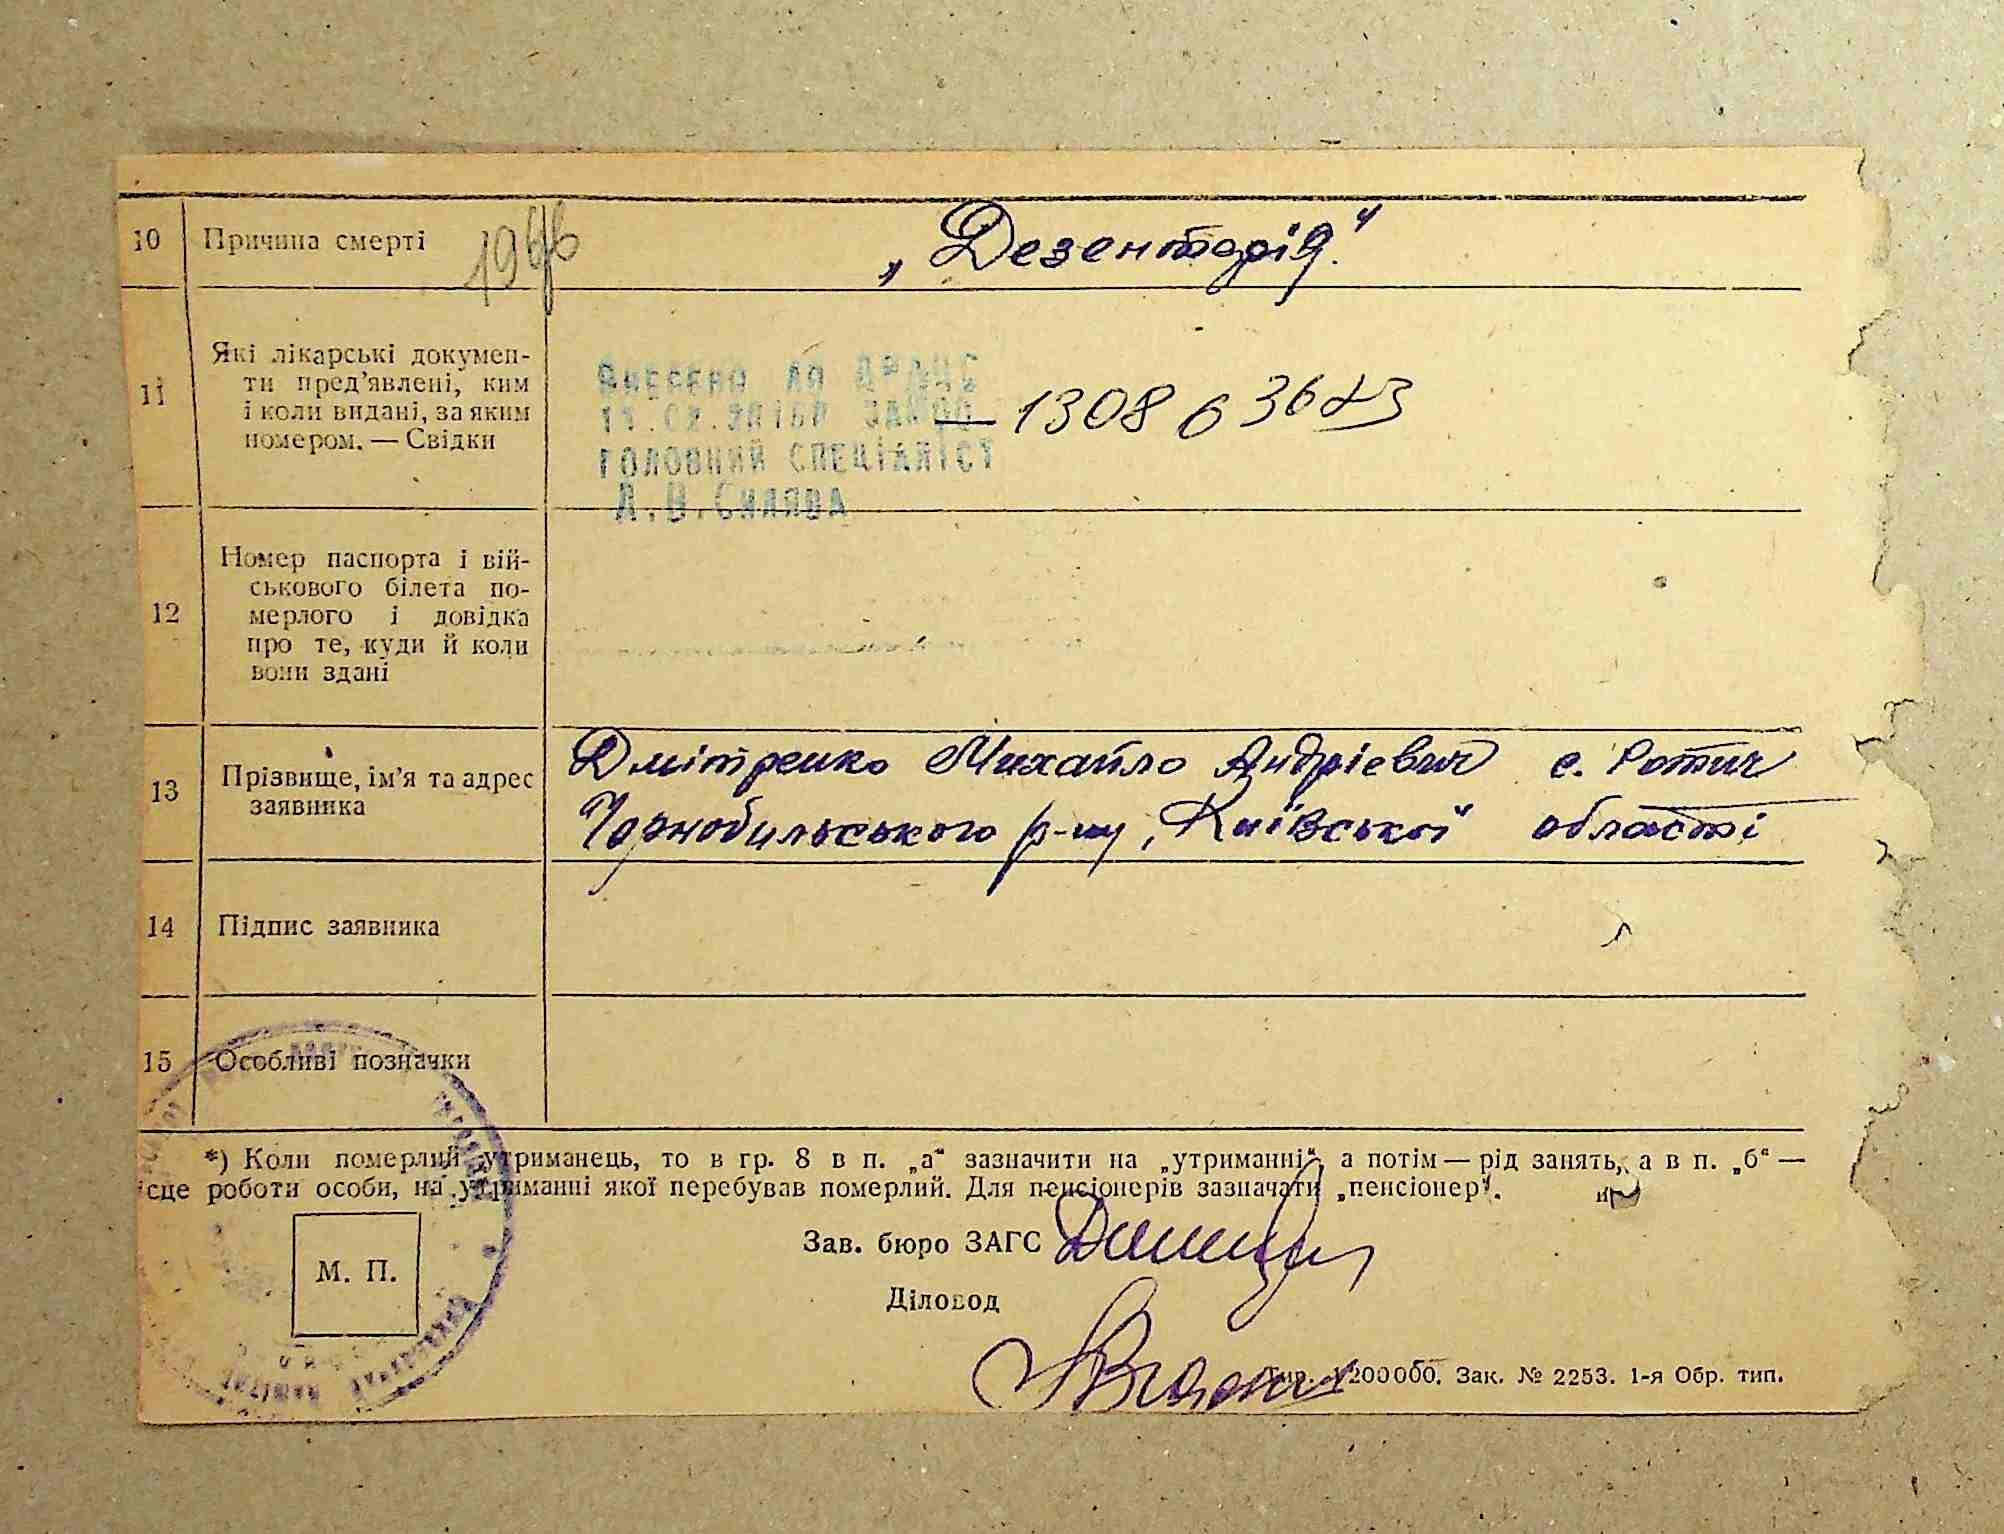 10 Причина смерті „Дезентерія“
11 Які лікарські документи
ти пред’явлені, ким
і коли видані, за яким
номером. — Свідки
Внесено до ДРАЦС
ЗА №
— 1308 63673
ГОЛОВНИЙ СПЕЦІАЛІСТ
12 Номер паспорта і вій-
ськового білета по-
мерлого і довідка
про те, куди й коли
вони здані
13 Прізвище, ім’я та адрес
заявника
Дмітренко Михайло Андрієвич с. Ротич
Чорнобильського р-ну, Київської області
14 Підпис заявника
15 Особливі позначки
*) Коли померлий утриманець, то в гр. 8 в п. „а“ зазначити на „утриманні“, а потім — рід занять, а в п. „б“ —
ісце роботи особи, на утриманні якої перебував померлий. Для пенсіонерів зазначати „пенсіонер“.
М. П.
Зав. бюро ЗАГС
Діловод
Зак. № 2253. 1-я Обр. тип.